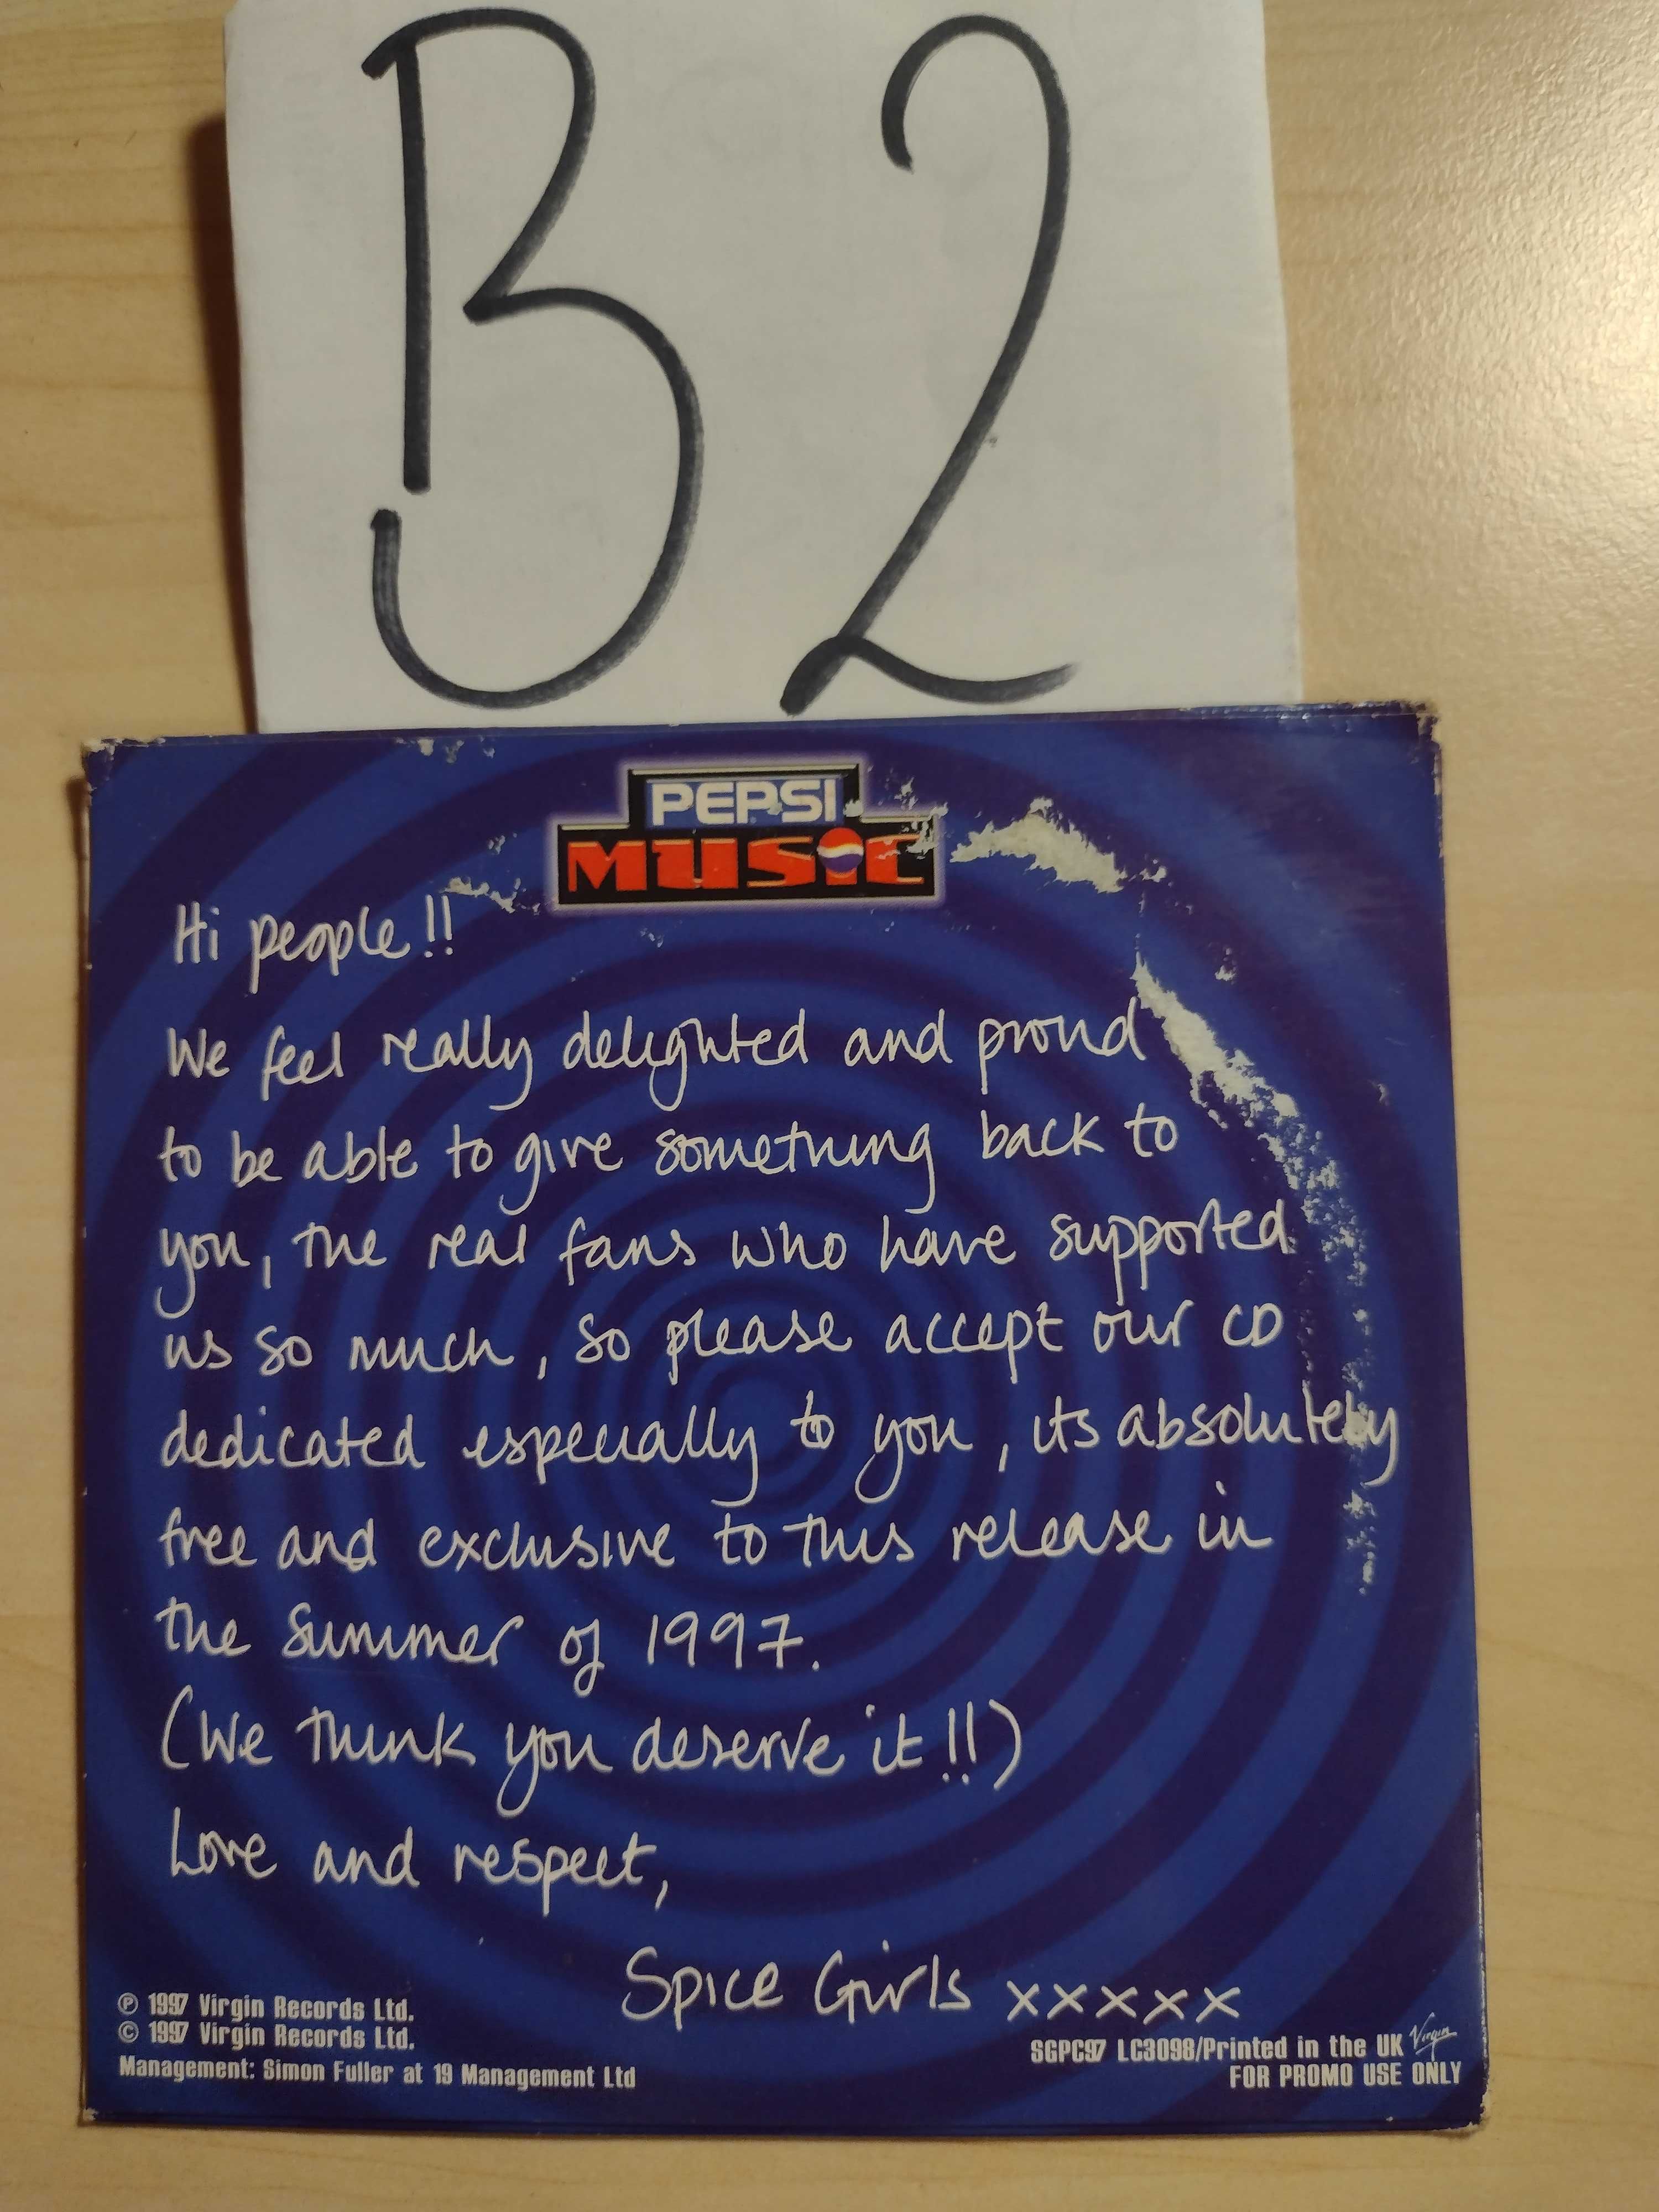 B2
PEPSI
MUSIC
Hi people!!
We feel really delighted and proud
to be able to give something back to
you, the real fans who have supported
us so much, so please accept our CD
dedicated especially to you, its absolutely
free and exclusive to this release in
the summer of 1997.
(We think you deserve it!!)
Love and respect,
Spice Girls xxxxx
℗ 1997 Virgin Records Ltd.
© 1997 Virgin Records Ltd.
Management: Simon Fuller at 19 Management Ltd
SGPC97 LC3098/Printed in the UK Virgin
FOR PROMO USE ONLY